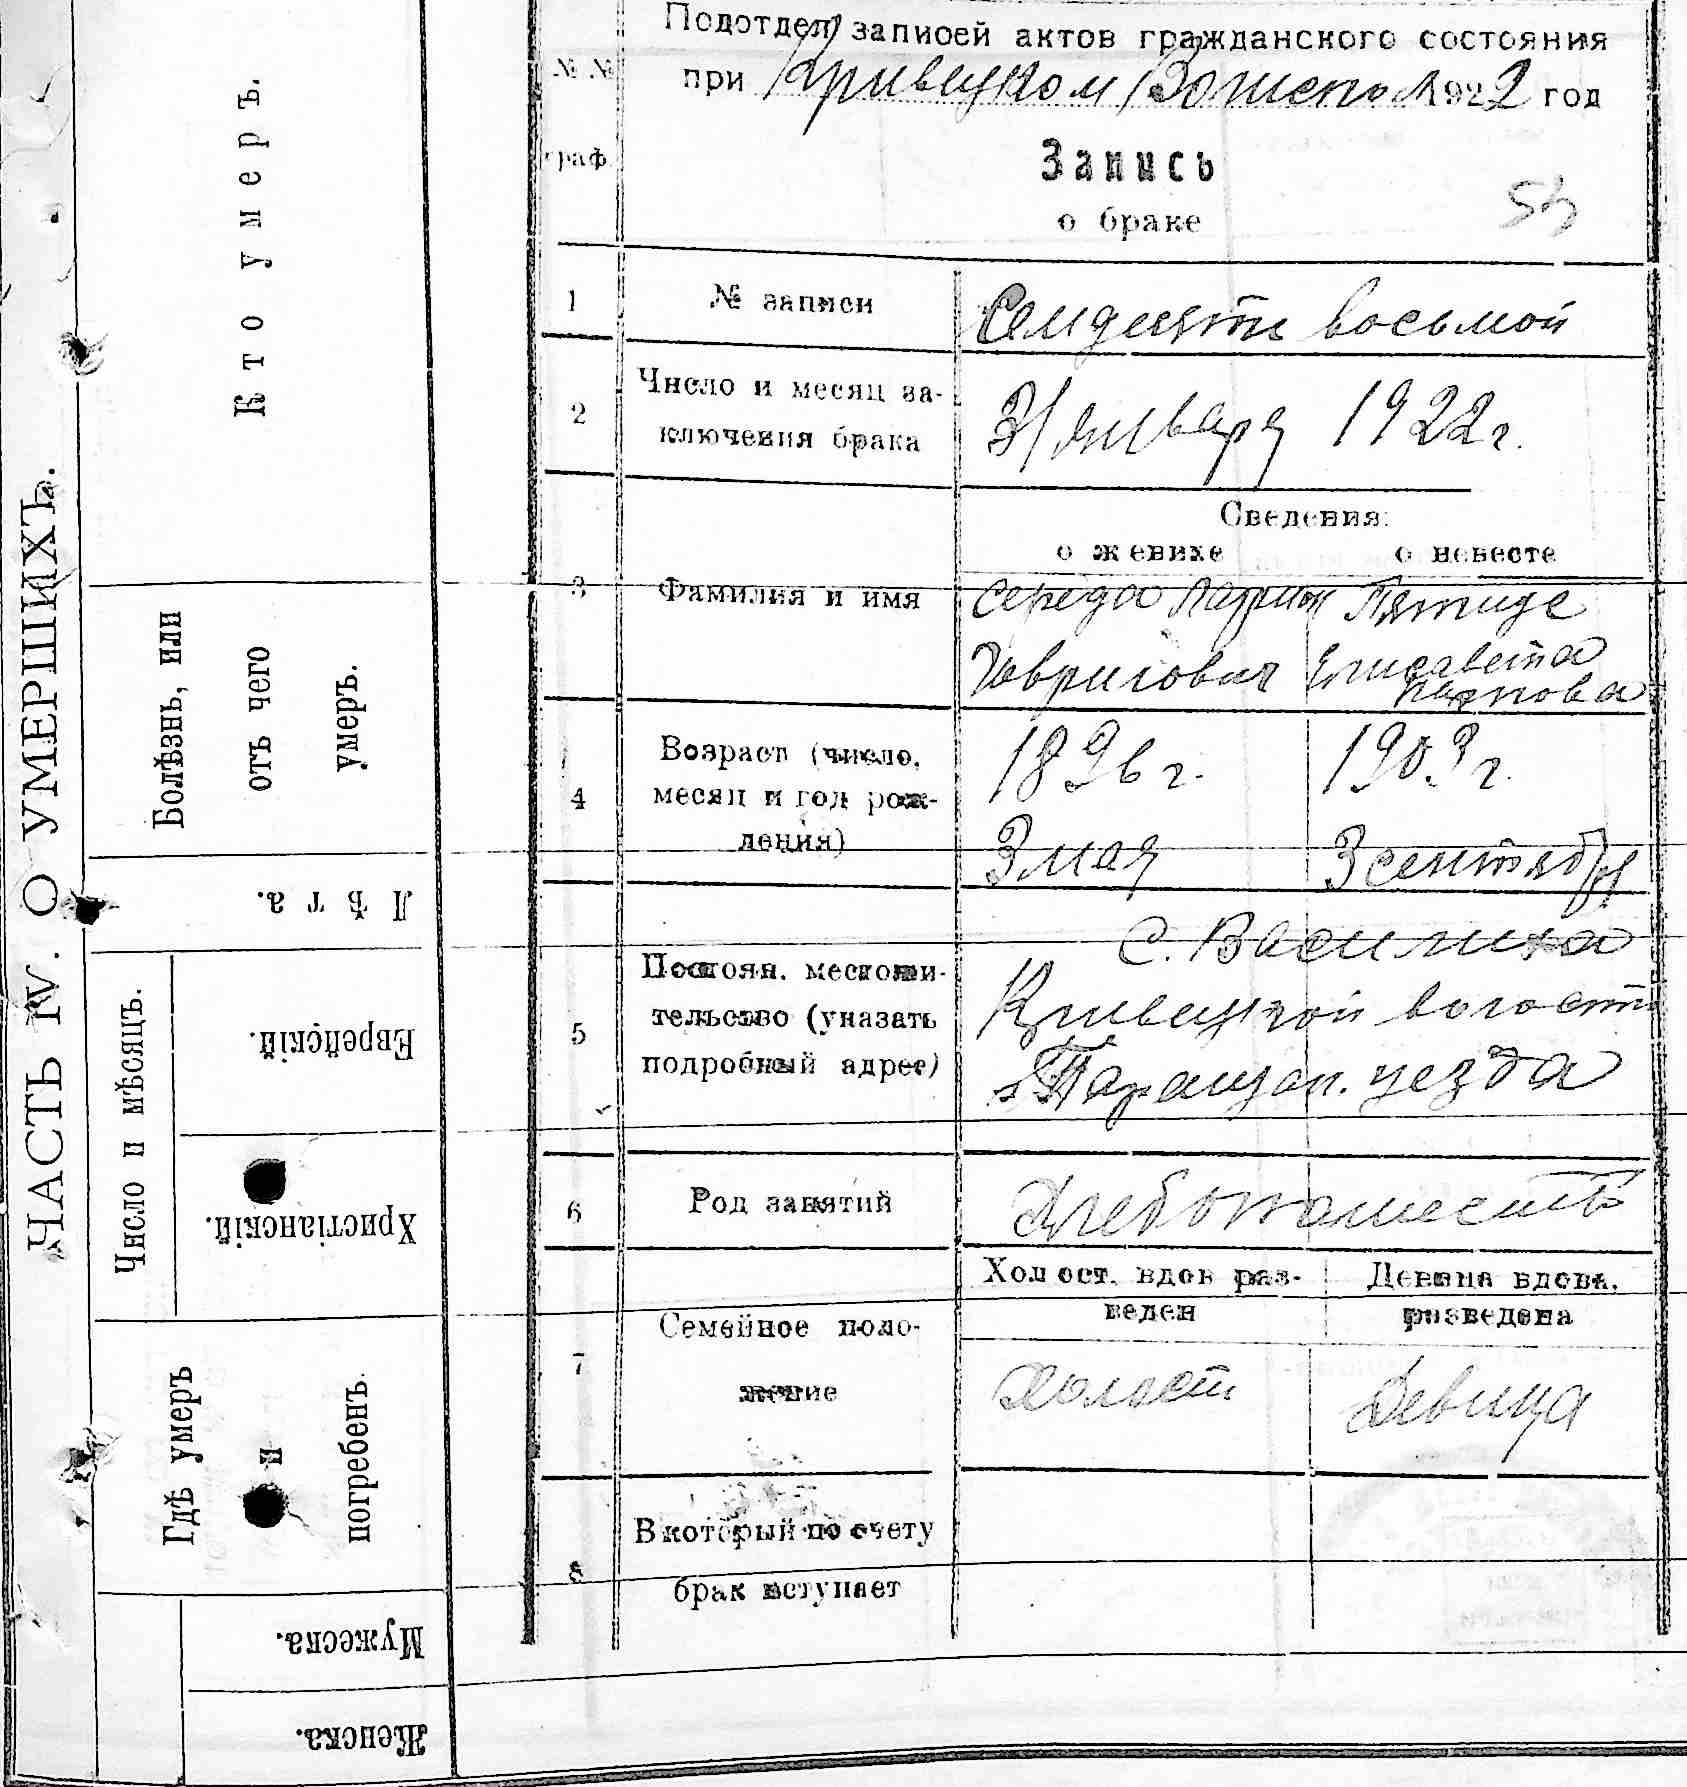 ЧАСТЬ IV. О УМЕРШИХЪ.
Кто умеръ.
Болѣзнь, или
отъ чего
умеръ.
Лѣта.
Число и мѣсяцъ.
Еврейскій.
Христіанскій.
Гдѣ умеръ
и
погребенъ.
Мужеска.
Женска.
Подотдел записей актов гражданского состояния
№ № при Кривецком Волисполк 1922 год
граф.
Запись
о браке
54
1 № записи Семдесять восьмой
2 Число и месяц за-
ключения брака 31 января 1922 г.
Сведения:
о женихе о невесте
3 Фамилия и имя Середа Ларион Пятице
Гаврилович Елисавета
Карпова
4 Возраст (число,
месяц и год рож-
дения)
1896 г. 1903 г.
3 мая 3 сентября
5 Постоян. местожи-
тельство (указать
подробный адрес)
С. Василиха
Кривецкой волости
Таращан. уезда
6 Род занятий Хлебопашеств
7 Семейное поло-
жение
Холост. вдов раз-
веден
Девица вдова,
разведена
Холост Девица
8 В который по счету
брак вступает